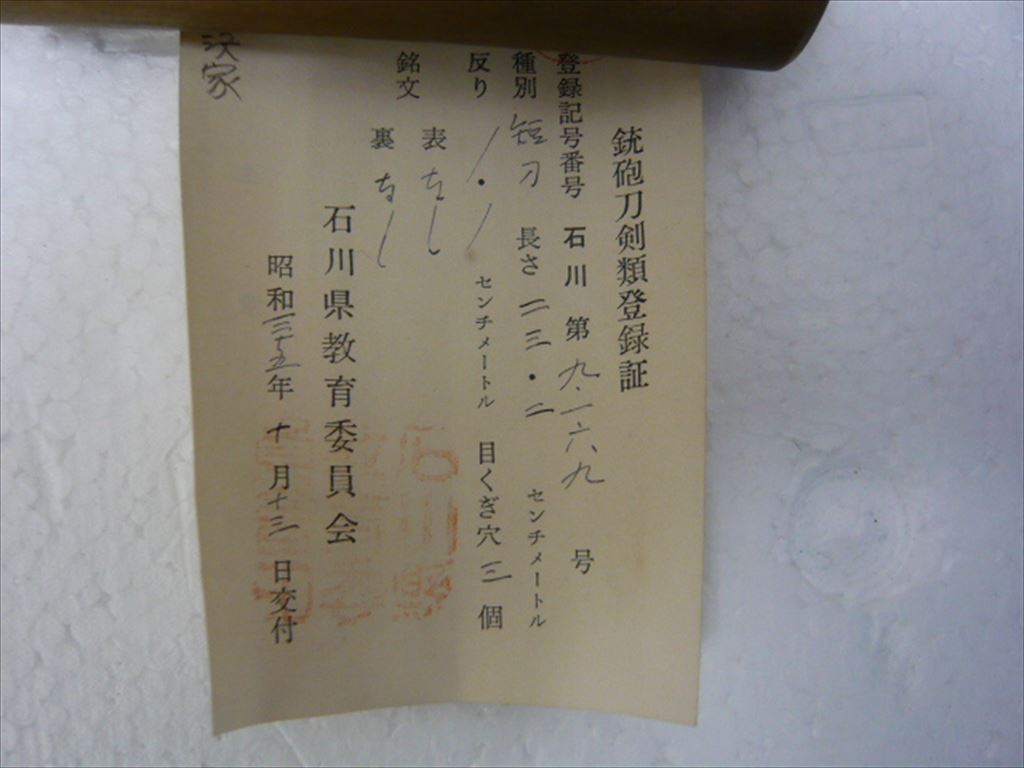 銃砲刀剣類登録証
登録記号番号 石川 第九一六九 号
種別 短刀 長さ 二三・二 センチメートル
反り ／・／ センチメートル 目くぎ穴 三 個
銘文 表 なし
裏 なし
石川県教育委員会
昭和三十五年 十 月 十三 日交付